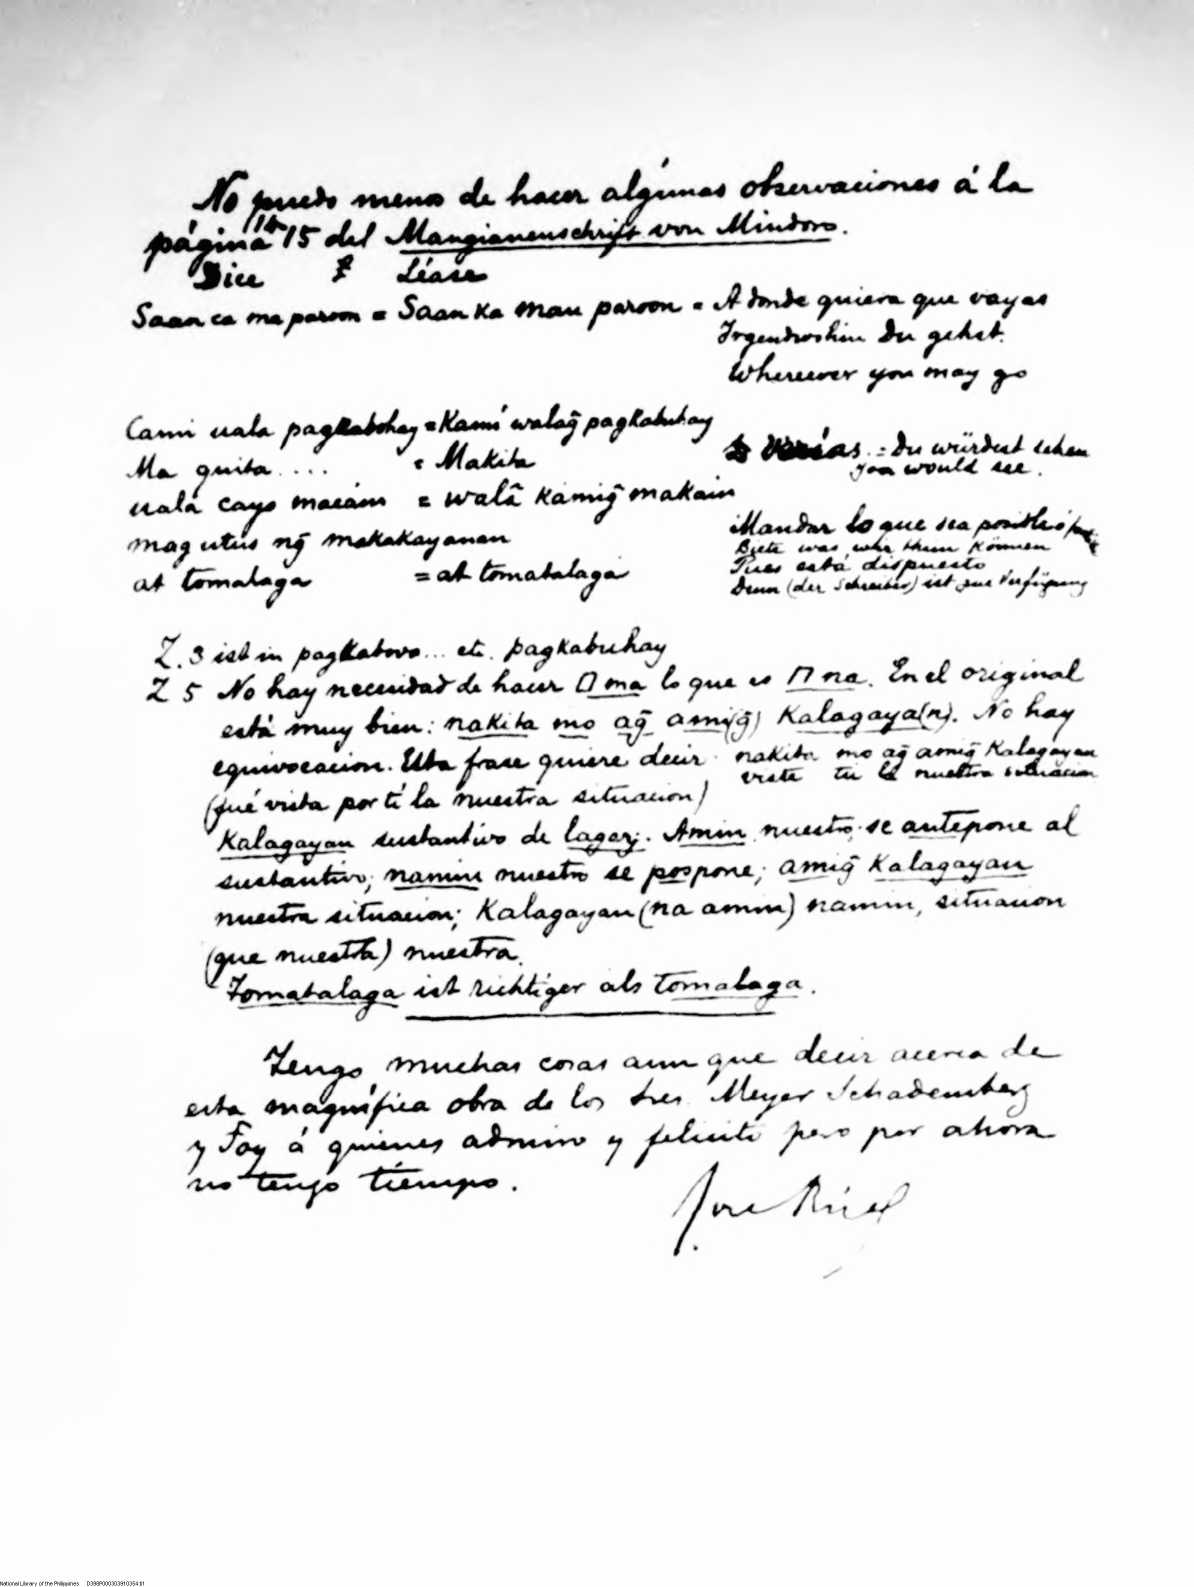 No puedo menos de hacer algúnas observaciones á la
página 14 15 del Mangianenschrift von Mindoro.
Dice Léase
Saan ca ma paroon = Saan ka mau paroon = A donde quiera que vayas
Irgendwohin Du gehst.
Wherever you may go
Cami uala pagkabohay = Kamí walag̃ pagkabuhay
Ma quita .... = Makita verías = Du würdest sehen
you would see.
ualá cayo macáin = walâ kamig̃ makain
Mandar lo que sea posible ó
mag utus ng̃ makakayanan
Biete was, wir Ihnen können
Pues está dispuesto
at tomalaga = at tomatalaga
Denn (der Schreiber) ist zur Verfügung
Z. 3 ist in pagkabovo... etc. pagkabuhay
Z 5 No hay necesidad de hacer ma lo que es na. En el original
está muy bien: nakita mo ag̃ ami(g̃) Kalagaya(n). No hay
equivocacion. Esta frase quiere decir: nakita mo ag̃ amig̃ Kalagayan
viste tu la nuestra situacion
(fué vista por tí la nuestra situacion)
Kalagayan sustantivo de lagay. Amin nuestro, se antepone al
sustantivo; namin nuestro se pospone; amig̃ Kalagayan
nuestra situacion; Kalagayan (na amin) namin, situacion
(que nuestra) nuestra.
Tomatalaga ist richtiger als tomalaga.
Tengo muchas cosas aun que decir acerca de
esta magnífica obra de los tres Meyer Schademberg
y Foy á quienes admiro y felicito pero por ahora
no tengo tiempo.
José Rizal
National Library of the Philippines